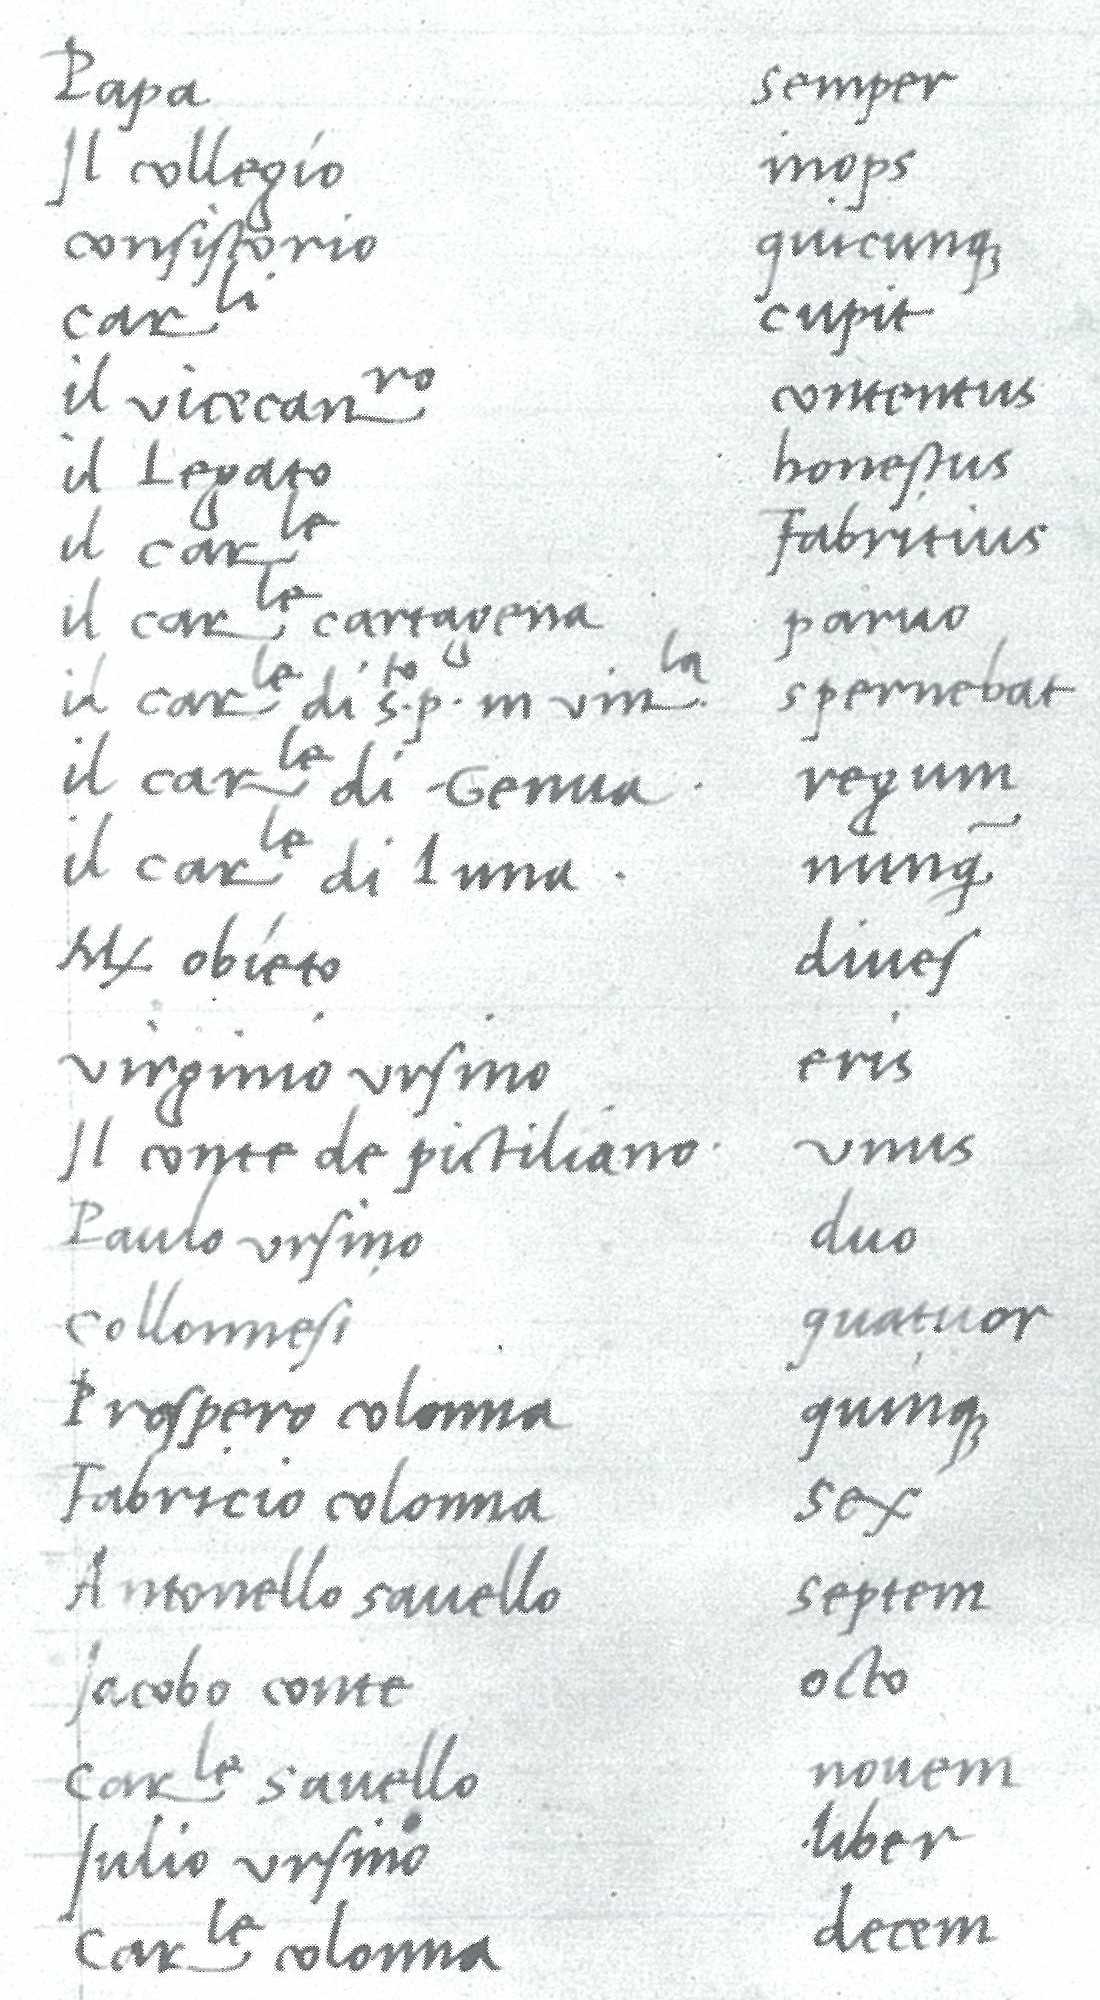 Papa semper
Il collegio inops
consistorio quicunq;
car.li cupit
il vicecan.ro contentus
il Legato honestus
il car.le Fabritius
il car.le cartagena paruo
il car.le di s.to p. in vin.la spernebat
il car.le di Genua regum
il car.le di Luna nunq̃
obieto diues
virginio vrsino eris
Il conte de pictiliano vnus
Paulo vrsino duo
collonnesi quatuor
Prospero colonna quinq;
Fabricio colonna sex
Antonello sauello septem
Jacobo conte octo
Car.le sauello nouem
Julio vrsino liber
Car.le colonna decem